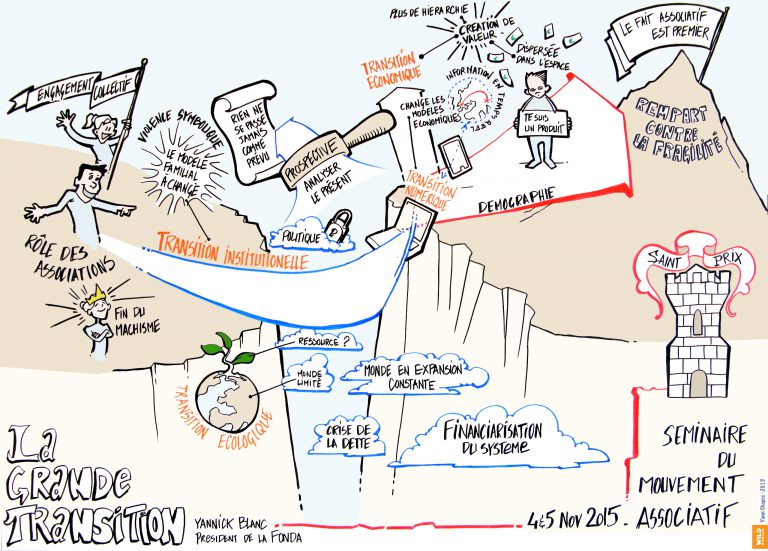 PLUS DE HIERARCHIE
CREATION DE
VALEUR
DISPERSÉE
DANS L'ESPACE
LE FAIT ASSOCIATIF
EST PREMIER
REMPART
CONTRE
LA FRAGILITÉ
ENGAGEMENT
COLLECTIF
VIOLENCE SYMBOLIQUE
LE MODÈLE
FAMILIAL
A CHANGÉ
RIEN NE
SE PASSE
JAMAIS
COMME
PRÉVU
PROSPECTIVE
ANALYSER
LE PRÉSENT
TRANSITION
ECONOMIQUE
CHANGER LES
MODÈLES
ECONOMIQUES
INFORMATION EN TEMPS RÉEL
JE SUIS
UN PRODUIT
TRANSITION
NUMERIQUE
DEMOGRAPHIE
POLITIQUE
TRANSITION INSTITUTIONELLE
RÔLE DES
ASSOCIATIONS
FIN DU
MACHISME
SAINT PRIX
RESSOURCE ?
MONDE
LIMITÉ
TRANSITION ECOLOGIQUE
MONDE EN EXPANSION
CONSTANTE
CRISE DE
LA DETTE
FINANCIARISATION
DU SYSTÈME
LA
GRANDE
TRANSITION
YANNICK BLANC
PRÉSIDENT DE LA FONDA
SEMINAIRE
DU
MOUVEMENT
ASSOCIATIF
4&5 NOV 2015 -
WILD
Yann Chapus - 2015